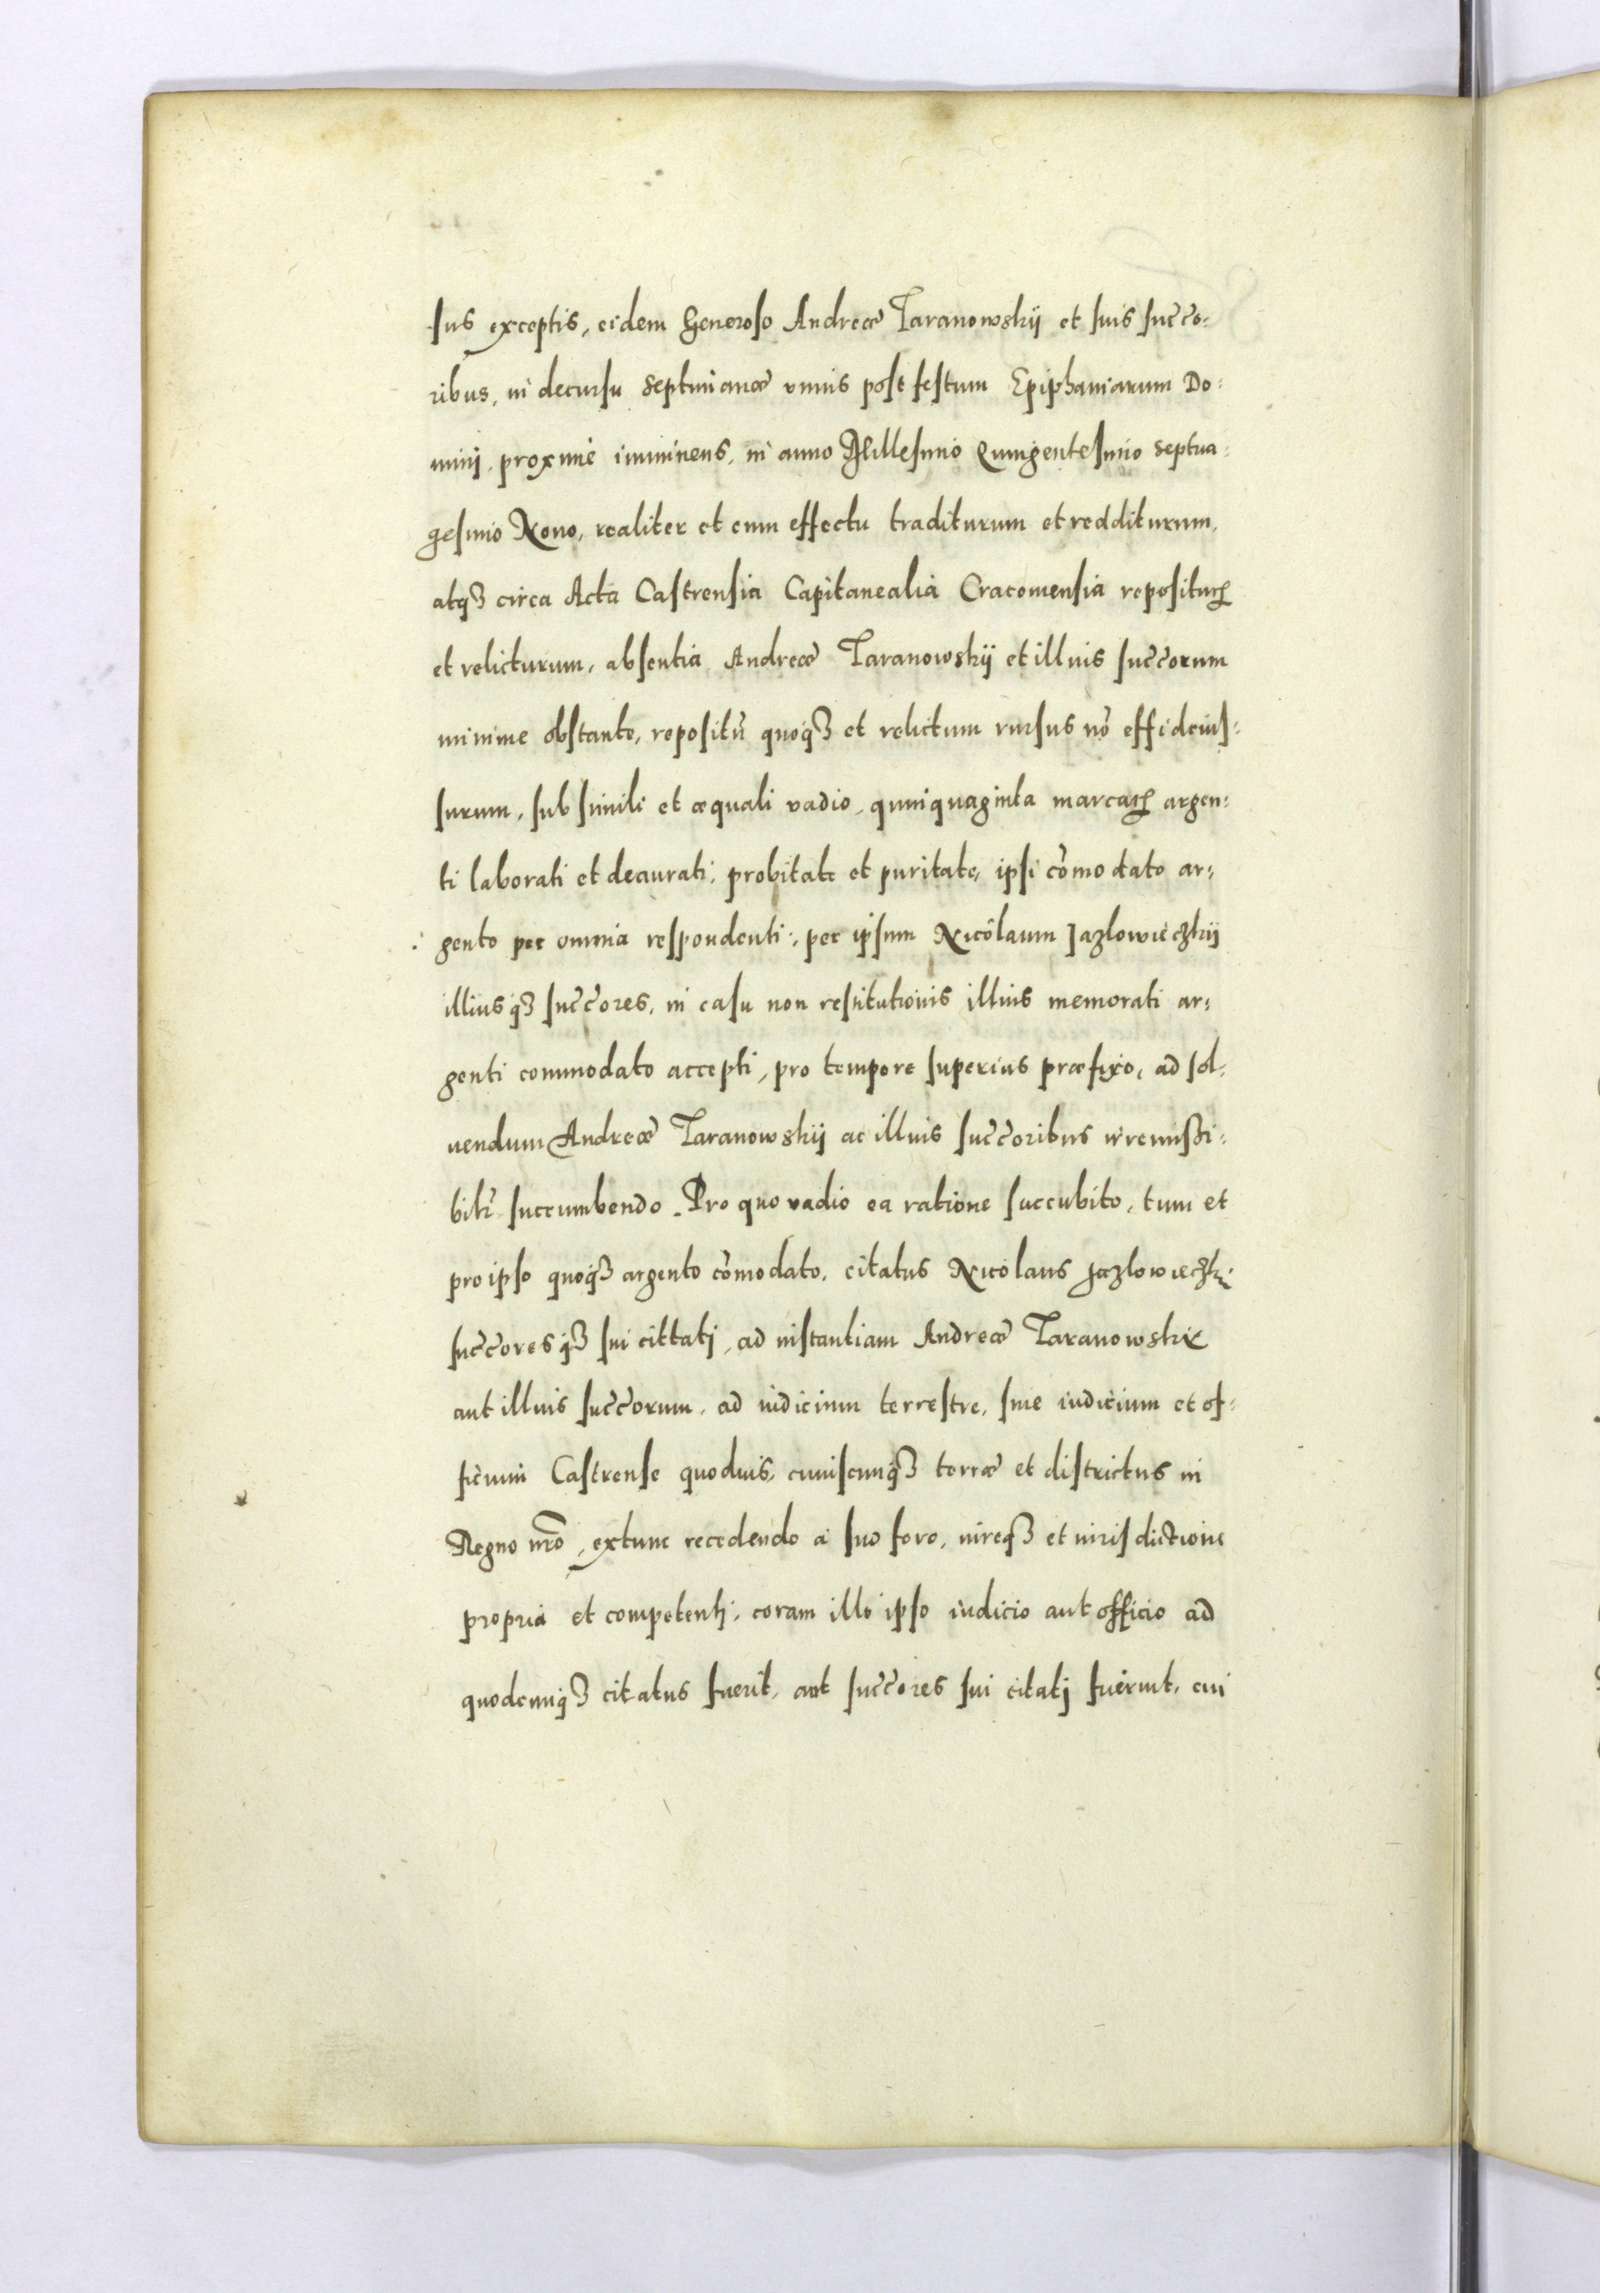 sus exceptis, eidem Generoso Andreæ Taranowskij et suis succo-
ribus, in decursu septimanæ unius post festum Epiphaniarum Do-
mini, proxime imminens, in anno Millesimo Quingentesimo septua-
gesimo Nono, realiter et cum effectu traditurum et redditurum,
atqꝫ circa Acta Castrensia Capitanealia Cracoviensia repositurꝫ
et relicturum, absentia Andreæ Taranowskij et illius succorum
minime obstante, repositū quoqꝫ et relictum rursus nō effideius-
surum, sub simili et æquali vadio, quinquaginta marcarꝫ argen-
ti laborati et deaurati, probitate et puritate, ipsi cōmodato ar-
gento per omnia respondenti, per ipsum Nicolaum Jazlowieczkij
illiusqꝫ succores, in casu non restitutionis illius memorati ar-
genti commodato accepti, pro tempore superius præfixo, ad sol-
vendum Andreæ Taranowskij ac illius succoribus irremissi-
bilr̄ succumbendo. Pro quo vadio ea ratione succubito, tum et
pro ipso quoqꝫ argento cōmodato, citatus Nicolaus Jazlowieczki
succoresqꝫ sui cittati, ad instantiam Andreæ Taranowskij
aut illius succorum, ad iudicium terrestre, sive iudicium et of-
ficium Castrense quoduis, cuiuscunqꝫ terræ et districtus in
Regno nr̄o, extunc recedendo a suo foro, iureqꝫ et iurisdictione
propria et competenti, coram illo ipso iudicio aut officio ad
quodcunqꝫ citatus fuerit, aut succores sui citati fuerint, cui